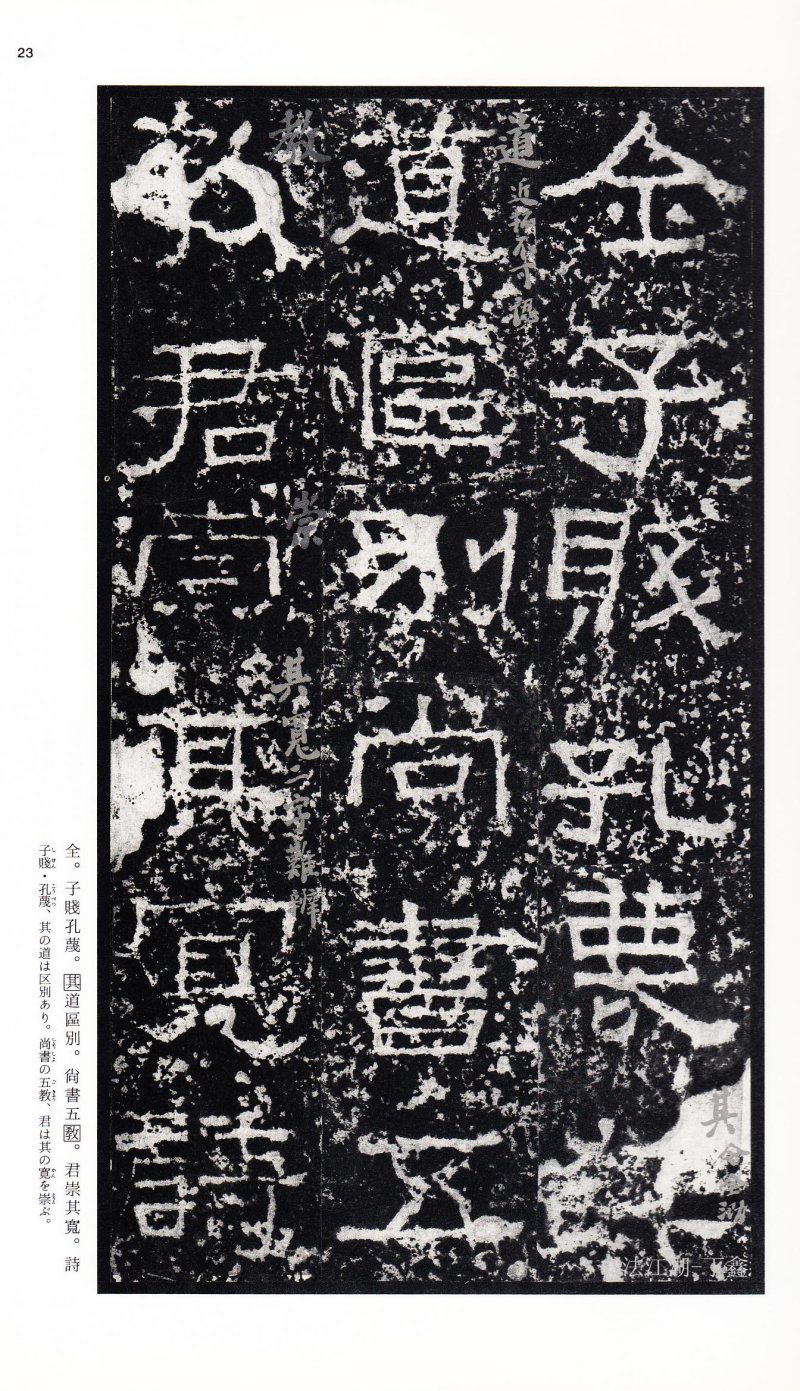 23
全子賤孔蔑其
道區別尚書五
教君崇其寬詩
道
教
崇
其寬二字難辨
其
全。子賤孔蔑。其道區別。尙書五教。君崇其寬。詩
子賤・孔蔑、其の道は区別あり。尚書の五教、君は其の寛を崇ぶ。
法江湖
鑫